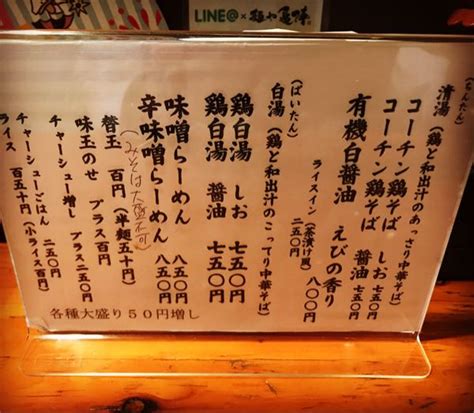 LINE@×麺や亀陣
清湯(ちんたん)
(鶏と和出汁のあっさり中華そば)
コーチン鶏そば しお 七五〇円
コーチン鶏そば 醤油 七五〇円
有機白醤油 えびの香り 八〇〇円
ライスイン(茶漬け風) 二五〇円
白湯(ぱいたん)
(鶏と和出汁のこってり中華そば)
鶏白湯 しお 七五〇円
鶏白湯 醤油 七五〇円
味噌らーめん 八五〇円
辛味噌らーめん 八五〇円
替玉 百円(半麺五十円)
味玉のせ プラス百円
チャーシュー増し プラス二五〇円
チャーシューごはん 二五〇円
ライス 百五十円(小ライス百円)
各種大盛り50円増し